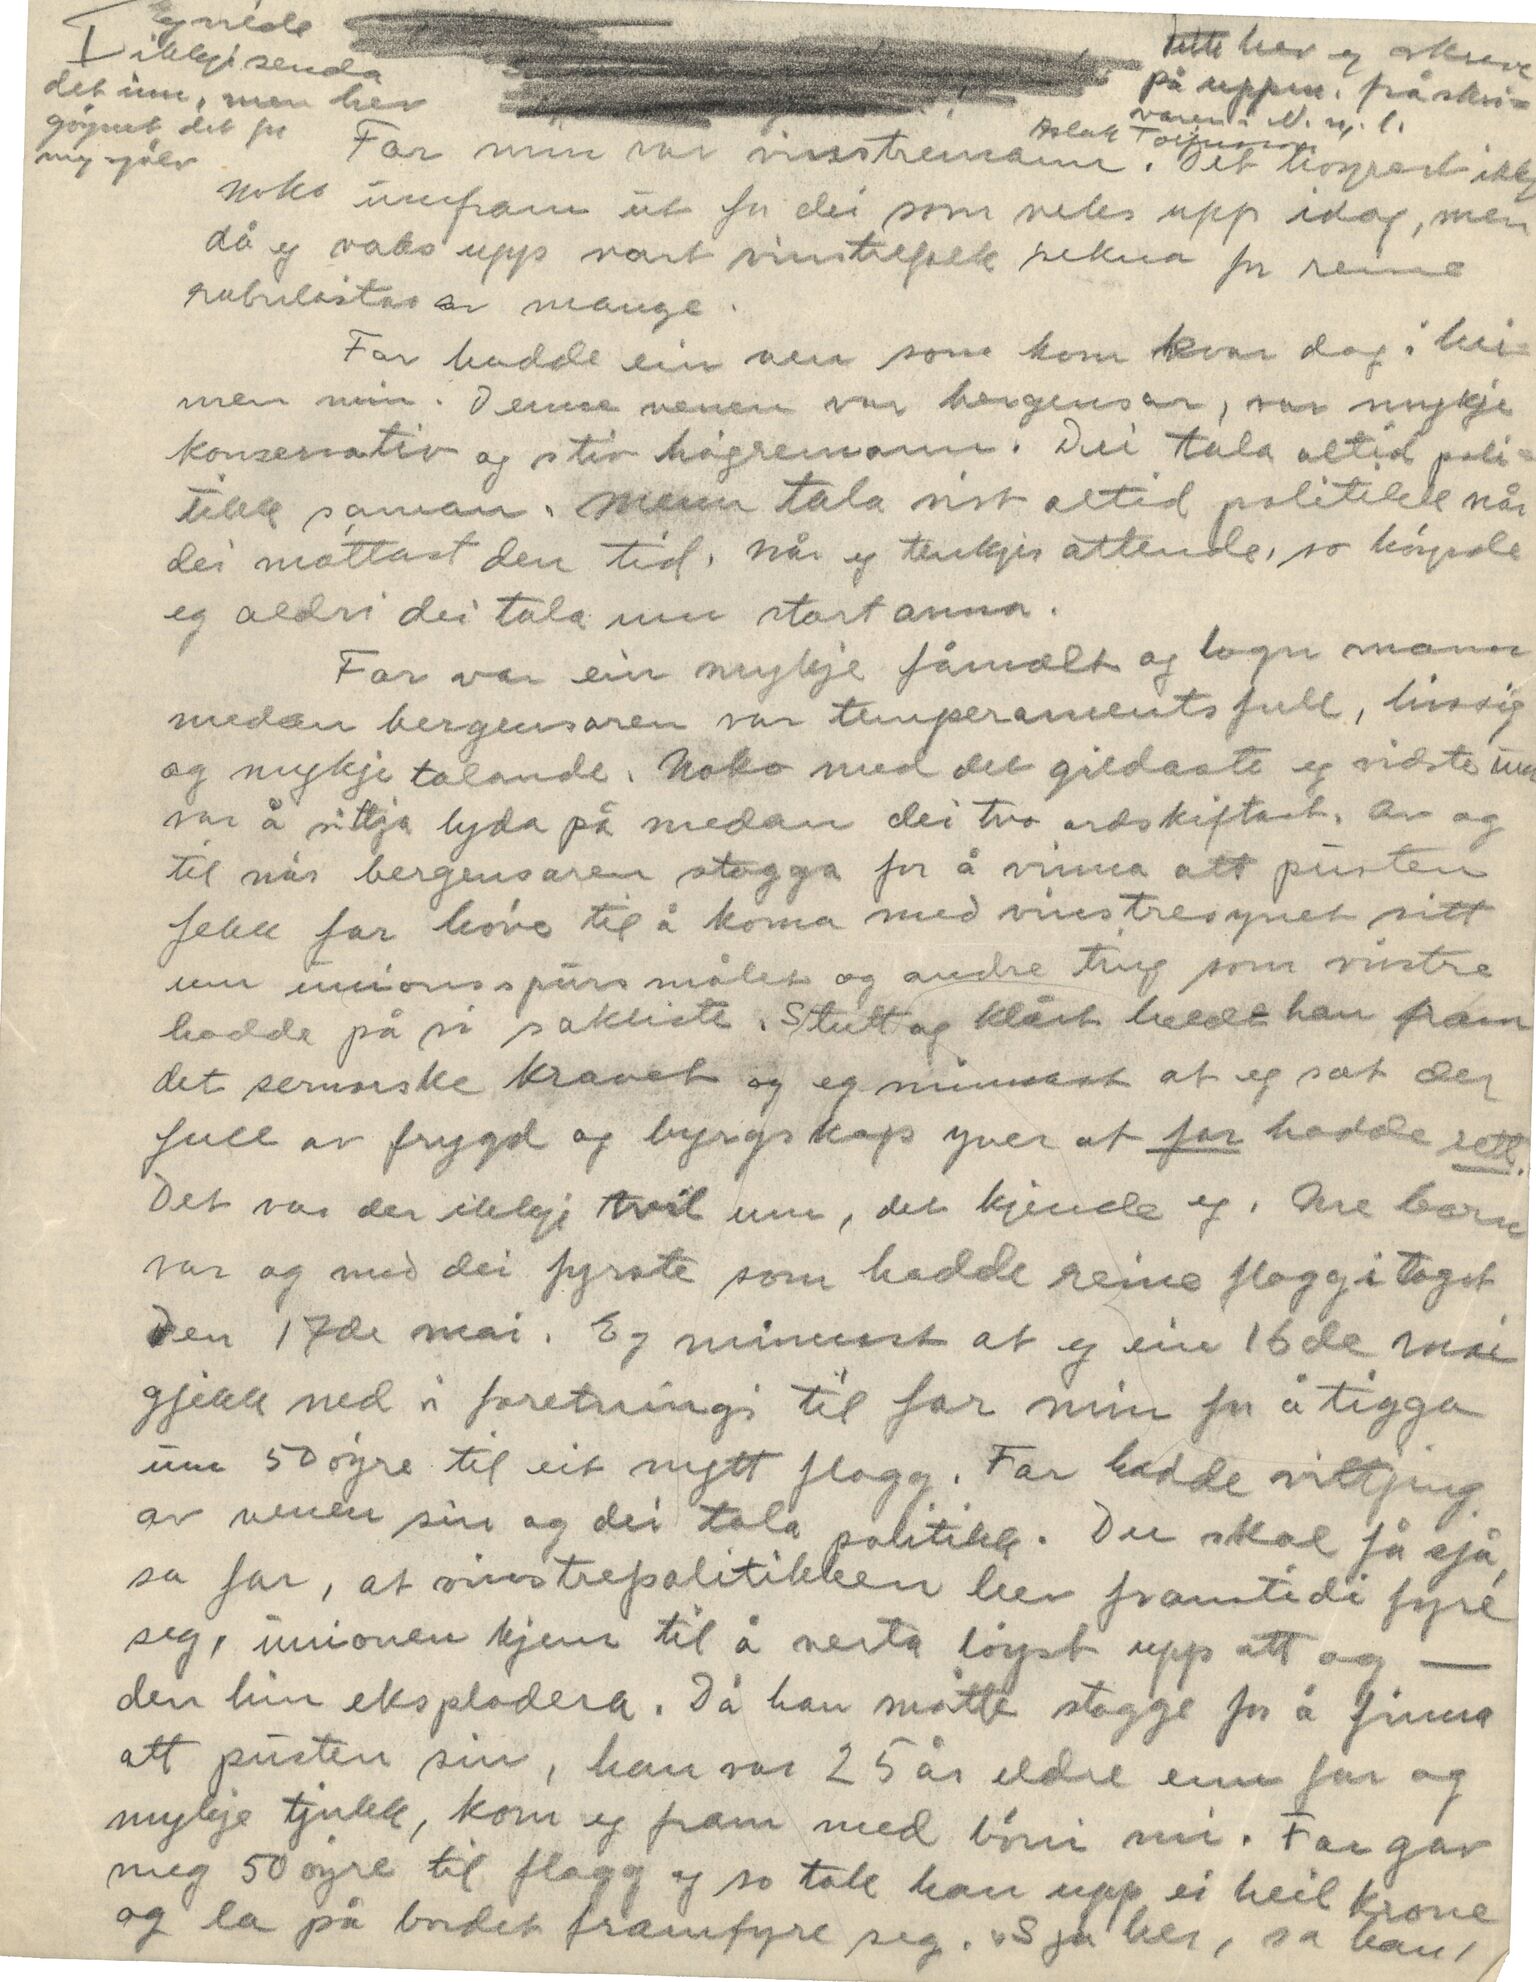 Eg vilde
ikkji senda
det inn, men hev
gøymt det fr
meg sjølv
Dette hev eg skreve
på uppm. frå skri-
varen i N. m. l.
Aslak Torjusson
Far min var vinstremann. Det høyrest ikkj
noko umfram ut fr dei som veks upp idag, men
då eg voks upp vart vinstrefolk rekna fr reine
rabulistar av mange.
Far hadde ein ven som kom kvar dag i hei-
men min. Denne venen var bergensar, var mykje
konservativ og stiv høgremann. Dei tala altid poli-
tikk saman. Menn tala vist altid politikk når
dei møttast den tid. Når eg tenkjer attende, so høyrde
eg aldri dei tala um stort anna.
Far var ein mykje fåmælt og logn mann
medan bergensaren var temperamentsfull, hissig
og mykje talande. Noko med det gildaste eg visste um
var å sittja lyda på medan dei tvo ordskiftast. Av og
til når bergensaren stogga for å vinna att pusten
fekk far høve til å koma med vinstresynet sitt
um unionsspursmålet og andre ting som vinstre
hadde på si sakliste. Stutt og klårt heldt han fram
det sernorske kravet og eg minnast at eg sat der
full av frygd og byrgskap yver at far hadde rett.
Det var der ikkji tvil um, det kjende eg. Me born
var og med dei fyrste som hadde reine flagg i toget
den 17de mai. Eg minnast at eg ein 16de mai
gjekk ned i foretningi til far min fr å tigga
um 50 øyre til eit nytt flagg. Far hadde vitjing
av venen sin og dei tala politikk. Du skal få sjå,
sa far, at vinstrepolitikken hev framtidi fyre
seg, unionen kjem til å verta løyst upp att og —
den hin eksplodera. Då han måtte stogge for å finna
att pusten sin, han var 25 år eldre enn far og
mykje tjukk, kom eg fram med bøni mi. Far gav
meg 50 øyre til flagg og so tok han upp ei heil krone
og la på bordet framfyre seg. "Sjå her, sa han,